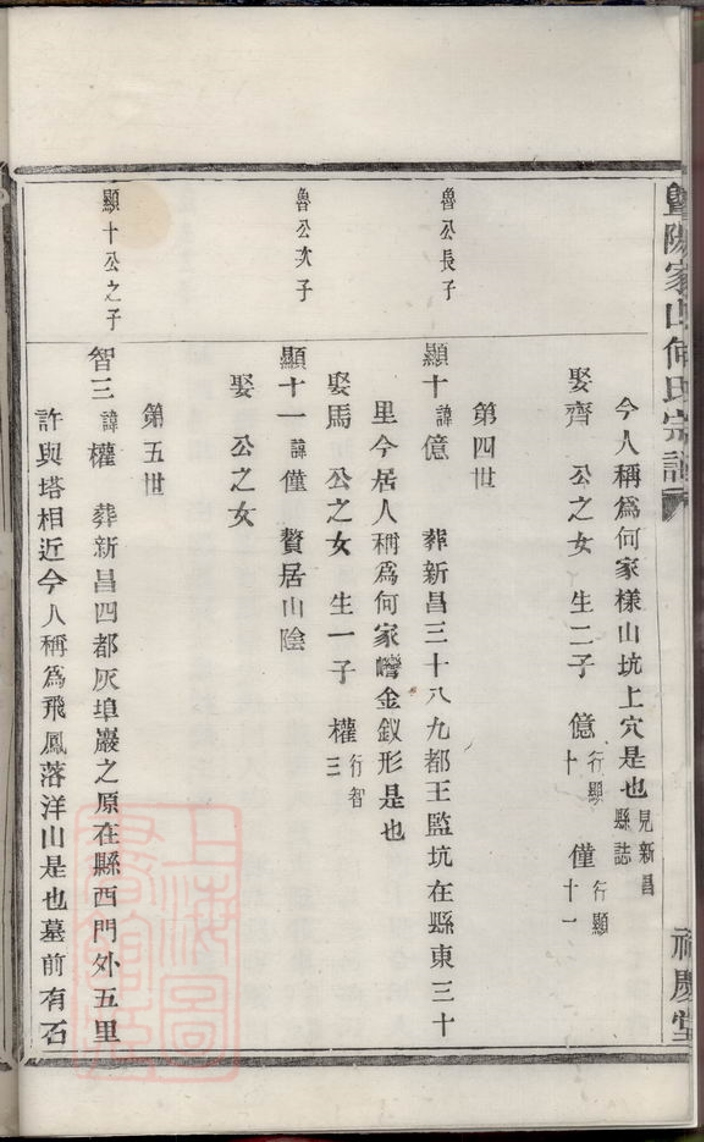 暨陽家山何氏宗譜
祠慶堂
今人稱爲何家樣山坑上穴是也見新昌縣誌
娶齊 公之女 生二子 億行顯十 僅行顯十一
第四世
魯公長子
顯十諱億 葬新昌三十八九都王監坑在縣東三十
里今居人稱爲何家灣金釵形是也
娶馬 公之女 生一子 權行智三
魯公次子
顯十一諱僅 贅居山陰
娶 公之女
第五世
顯十公之子
智三諱權 葬新昌四都灰埠巖之原在縣西門外五里
許與塔相近今人稱爲飛鳳落洋山是也墓前有石
上海圖書館藏